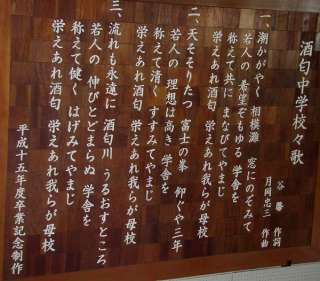 酒匂中学校々歌
谷 馨 作詞
月岡忠三 作曲
一、潮かがやく 相模灘 窓にのぞみて
若人の 希望ぞもゆる 学舎を
称えて共に まなびてやまじ
栄えあれ酒匂 栄えあれ我らが母校
二、天そそりたつ 富士の峯 仰ぐや三年
若人の 理想は高き 学舎を
称えて清く すすみてやまじ
栄えあれ酒匂 栄えあれ我らが母校
三、流れも永遠に 酒匂川 うるおすところ
若人の 伸びとどまらぬ 学舎を
称えて健く はげみてやまじ
栄えあれ酒匂 栄えあれ我らが母校
平成十五年度卒業記念制作